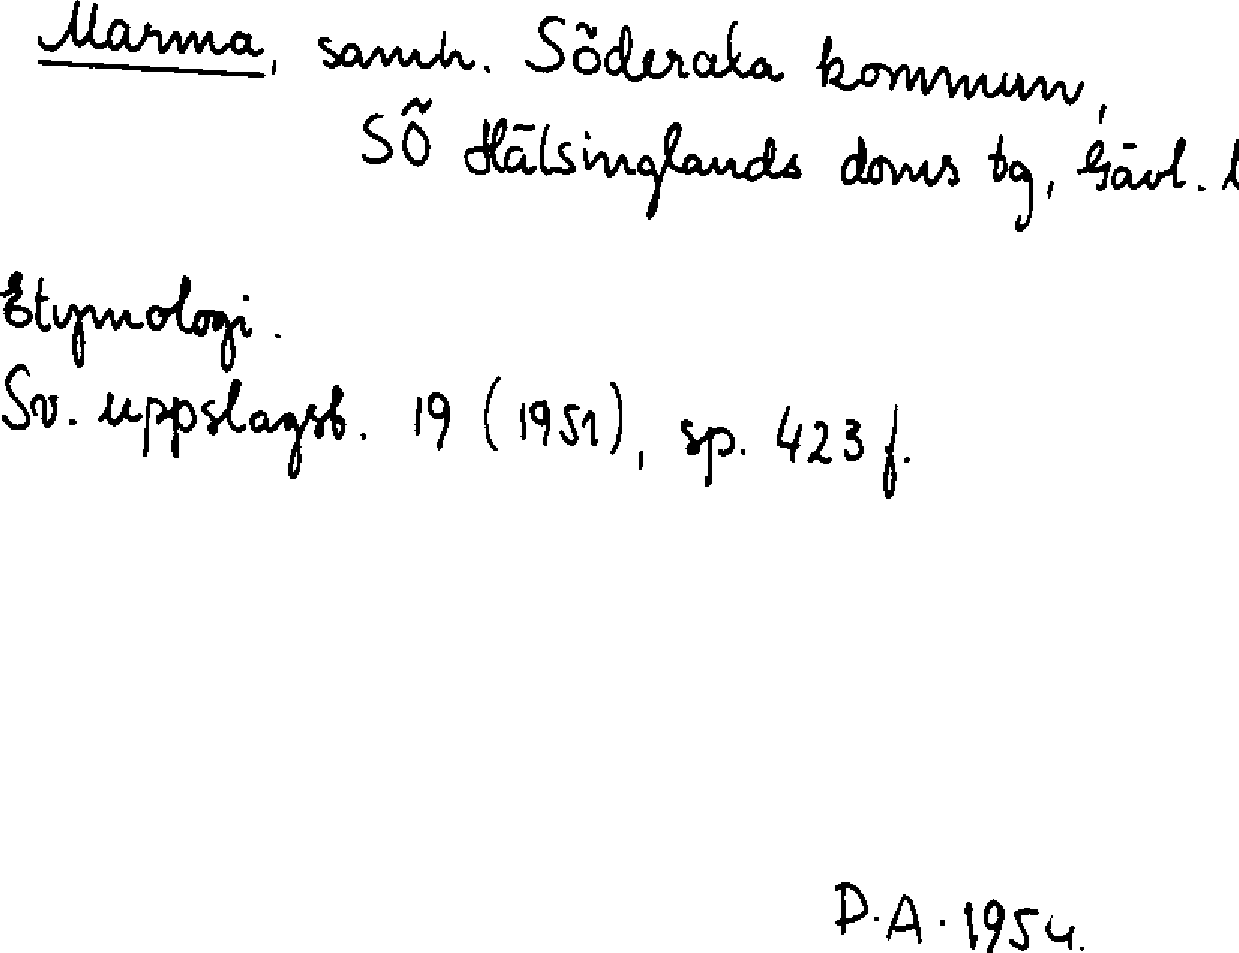 Marma, samh. Söderala kommun,
SÖ Hälsinglands doms tg, Gävl. l
Etymologi.
Sv. uppslagsb. 19 (1951), sp. 423 f.
D.A. 1954.